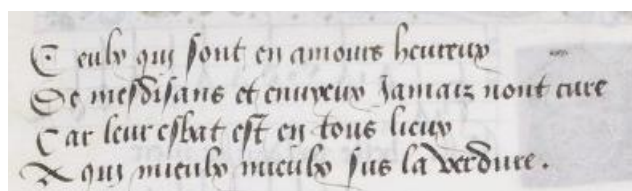 Ceulx qui sont en amours heureux
De mesdisans et enuyeux Jamaiz nont cure
Car leur esbat est en tous lieux
A qui mieulx mieulx sus la verdure.